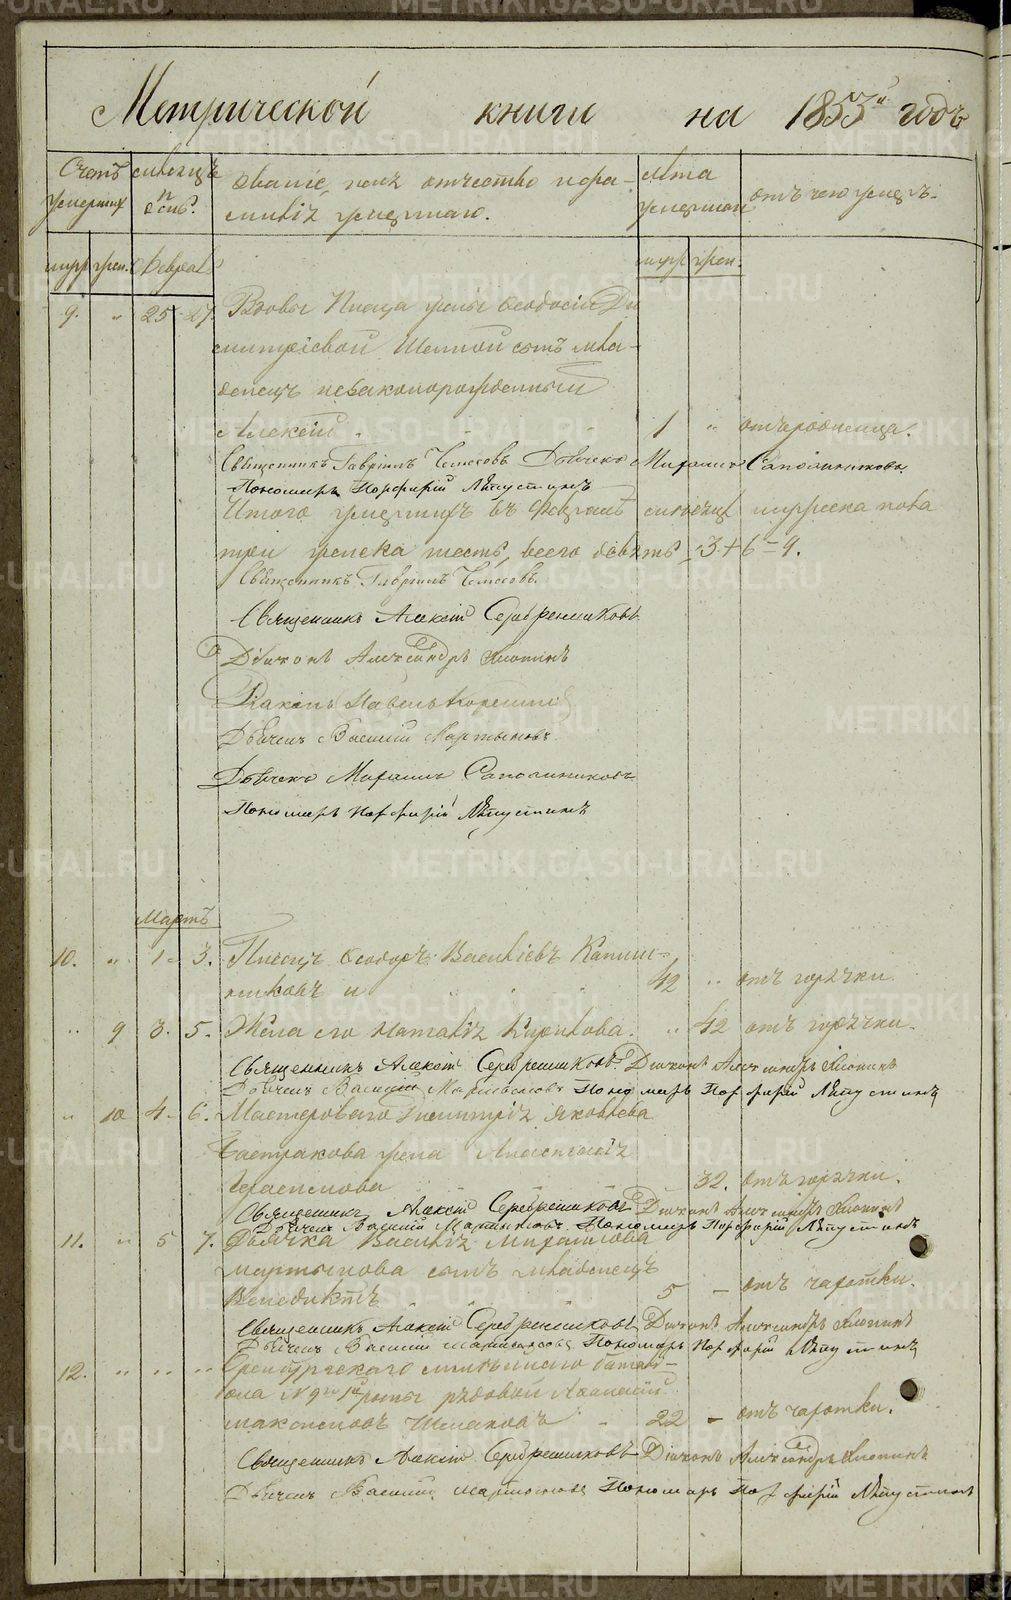 Метрической книги на 1855й годъ
Счетъ умершихъ
месяцъ и день.
Званіе, имя отчество и фамилія умершаго.
лета умершаго
отъ чего умеръ.
муж жен. Февраль муж жен.
9. " 25 27. Вдовы Писца жены Феодосіи Ди
митріевой сынъ мла-
денецъ незаконорожденный
Алексѣй 1 " отъ родимца.
Священникъ Гавріилъ Дьячекъ Михаилъ Сапожниковъ.
Пономарь Порфирій
Итого умершихъ въ Февралѣ месяцѣ мужеска пола
три женска шесть, всего девять 3+6=9.
Священникъ Гавріилъ
Священникъ Алексій Серебренниковъ
Діаконъ Александръ Клопинъ
Діаконъ Павелъ
Дьячекъ Василій Мартыновъ
Дьячекъ Михаилъ Сапожниковъ
Пономарь Порфирій
Мартъ
10. " 1 3. Писецъ Феодоръ Васильевъ
никовъ и 42 " отъ горячки.
" 9 3. 5. Жена его Наталія Кирилова. " 42 отъ горячки.
Священникъ Алексій Серебренниковъ Діаконъ Александръ Клопинъ
Дьячекъ Василій Мартыновъ Пономарь Порфирій
" 10 4. 6. Мастероваго Димитрія Яковлева
жена Анастасія
Герасимова 32. отъ горячки.
Священникъ Алексій Серебренниковъ Діаконъ Александръ Клопинъ
Дьячекъ Василій Мартыновъ Пономарь Порфирій
11. " 5 7. Дьячка Василія Михайлова
Мартынова сынъ младенецъ
Венедиктъ 5 – отъ чахотки.
Священникъ Алексій Серебренниковъ Діаконъ Александръ Клопинъ
Дьячекъ Василій Мартыновъ Пономарь Порфирій
12. " " " Оренбургскаго линейнаго батал-
она № 9го 1й роты рядовой Афанасій
Максимовъ 22 – отъ чахотки.
Священникъ Алексій Серебренниковъ Діаконъ Александръ Клопинъ
Дьячекъ Василій Мартыновъ Пономарь Порфирій
METRIKI.GASO-URAL.RU